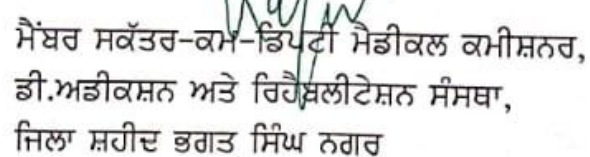 ਮੈਂਬਰ ਸਕੱਤਰ-ਕਮ-ਡਿਪਟੀ ਮੈਡੀਕਲ ਕਮੀਸ਼ਨਰ,
ਡੀ.ਅਡੀਕਸ਼ਨ ਅਤੇ ਰਿਹੈਬਲੀਟੇਸ਼ਨ ਸੰਸਥਾ,
ਜਿਲਾ ਸ਼ਹੀਦ ਭਗਤ ਸਿੰਘ ਨਗਰ